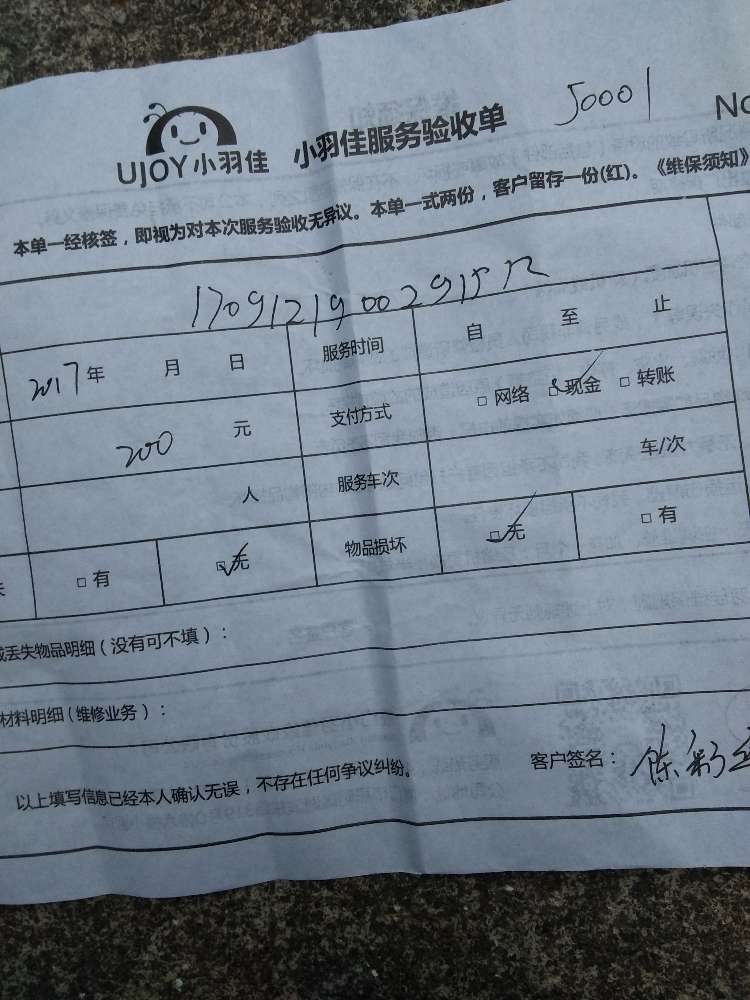 UJOY小羽佳 小羽佳服务验收单 50001 No
本单一经核签，即视为对本次服务验收无异议。本单一式两份，客户留存一份(红)。《维保须知》
2017年 月 日 服务时间 自 至 止
200 元 支付方式 □ 网络 □ 现金 □ 转账
人 服务车次 车/次
□ 有 □ 无 物品损坏 □ 无 □ 有
丢失物品明细（没有可不填）：
材料明细（维修业务）：
以上填写信息已经本人确认无误，不存在任何争议纠纷。 客户签名：陈彩